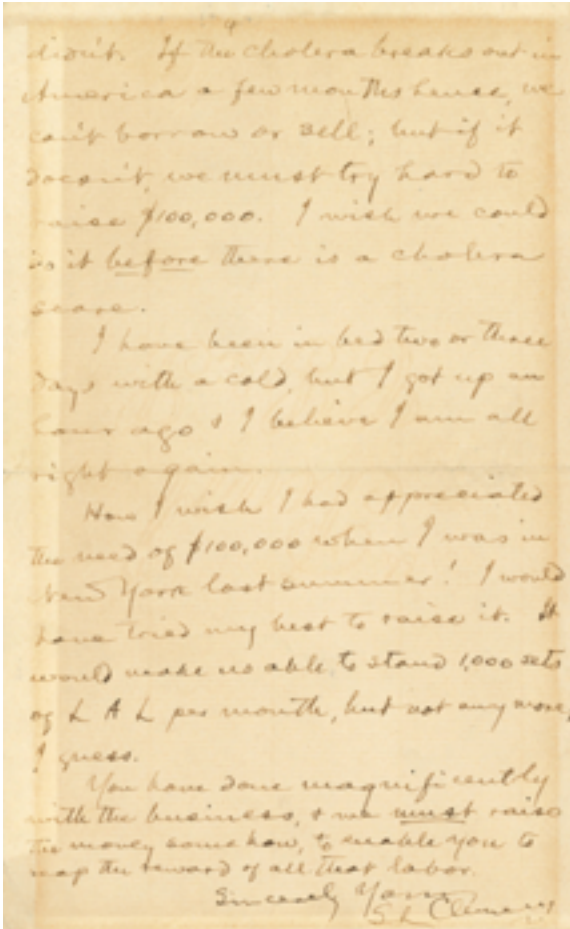 4
didn't. If the cholera breaks out in
America a few months hence, we
can't borrow or sell; but if it
doesn't, we must try hard to
raise $100,000. I wish we could
do it before there is a cholera
scare.
I have been in bed two or three
days with a cold, but I got up an
hour ago & I believe I am all
right again.
How I wish I had appreciated
the need of $100,000 when I was in
New York last summer! I would
have tried my best to raise it. It
would make us able to stand 1,000 sets
of L A L per month, but not any more,
I guess.
You have done magnificently
with the business, & we must raise
the money somehow, to enable you to
reap the reward of all that labor.
Sincerely Yours
S L Clemens